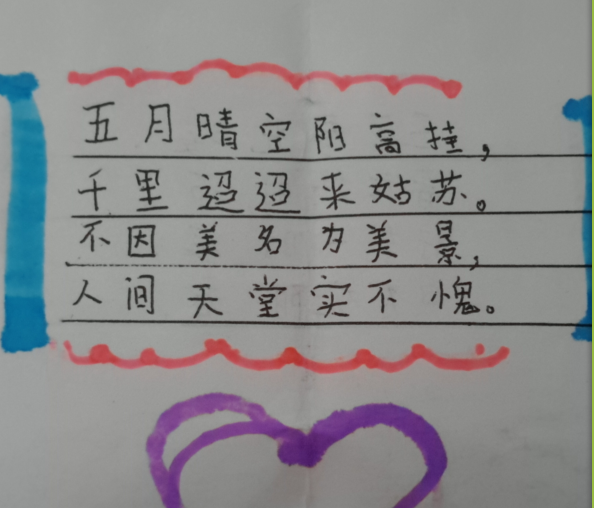 五月晴空阳高挂，
千里迢迢来姑苏。
不因美名为美景，
人间天堂实不愧。